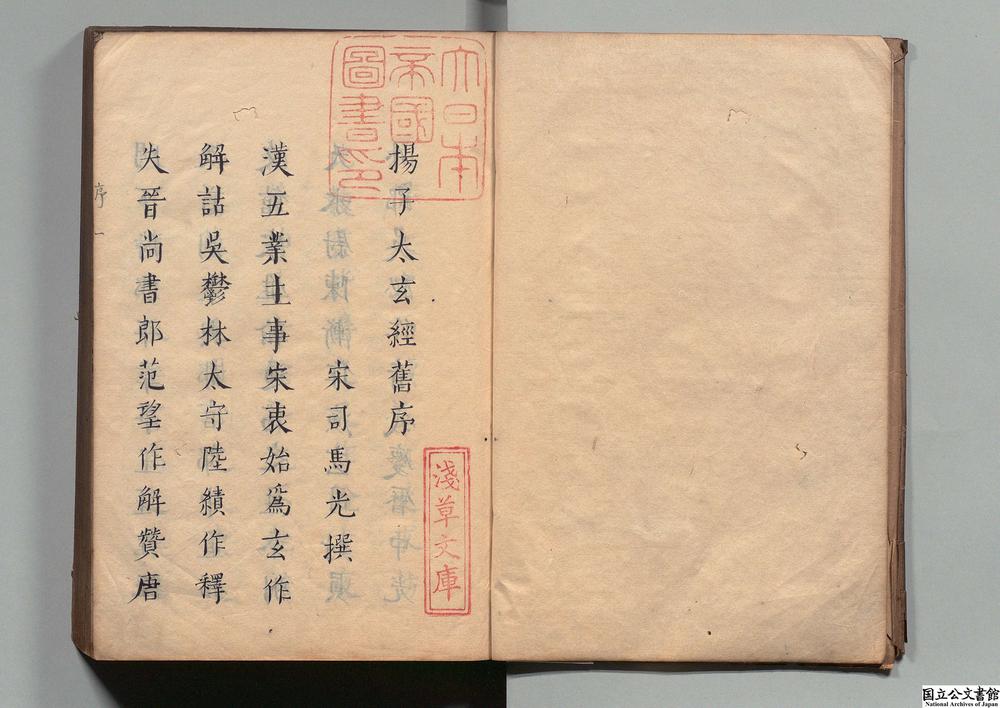 揚子太玄經舊序
宋司馬光撰
漢五業主事宋衷始爲玄作
解詁吳鬱林太守陸績作釋
失晉尚書郎范望作解贊唐
序
一
大日本
帝國
圖書印
淺草文庫
国立公文書館
National Archives of Japan